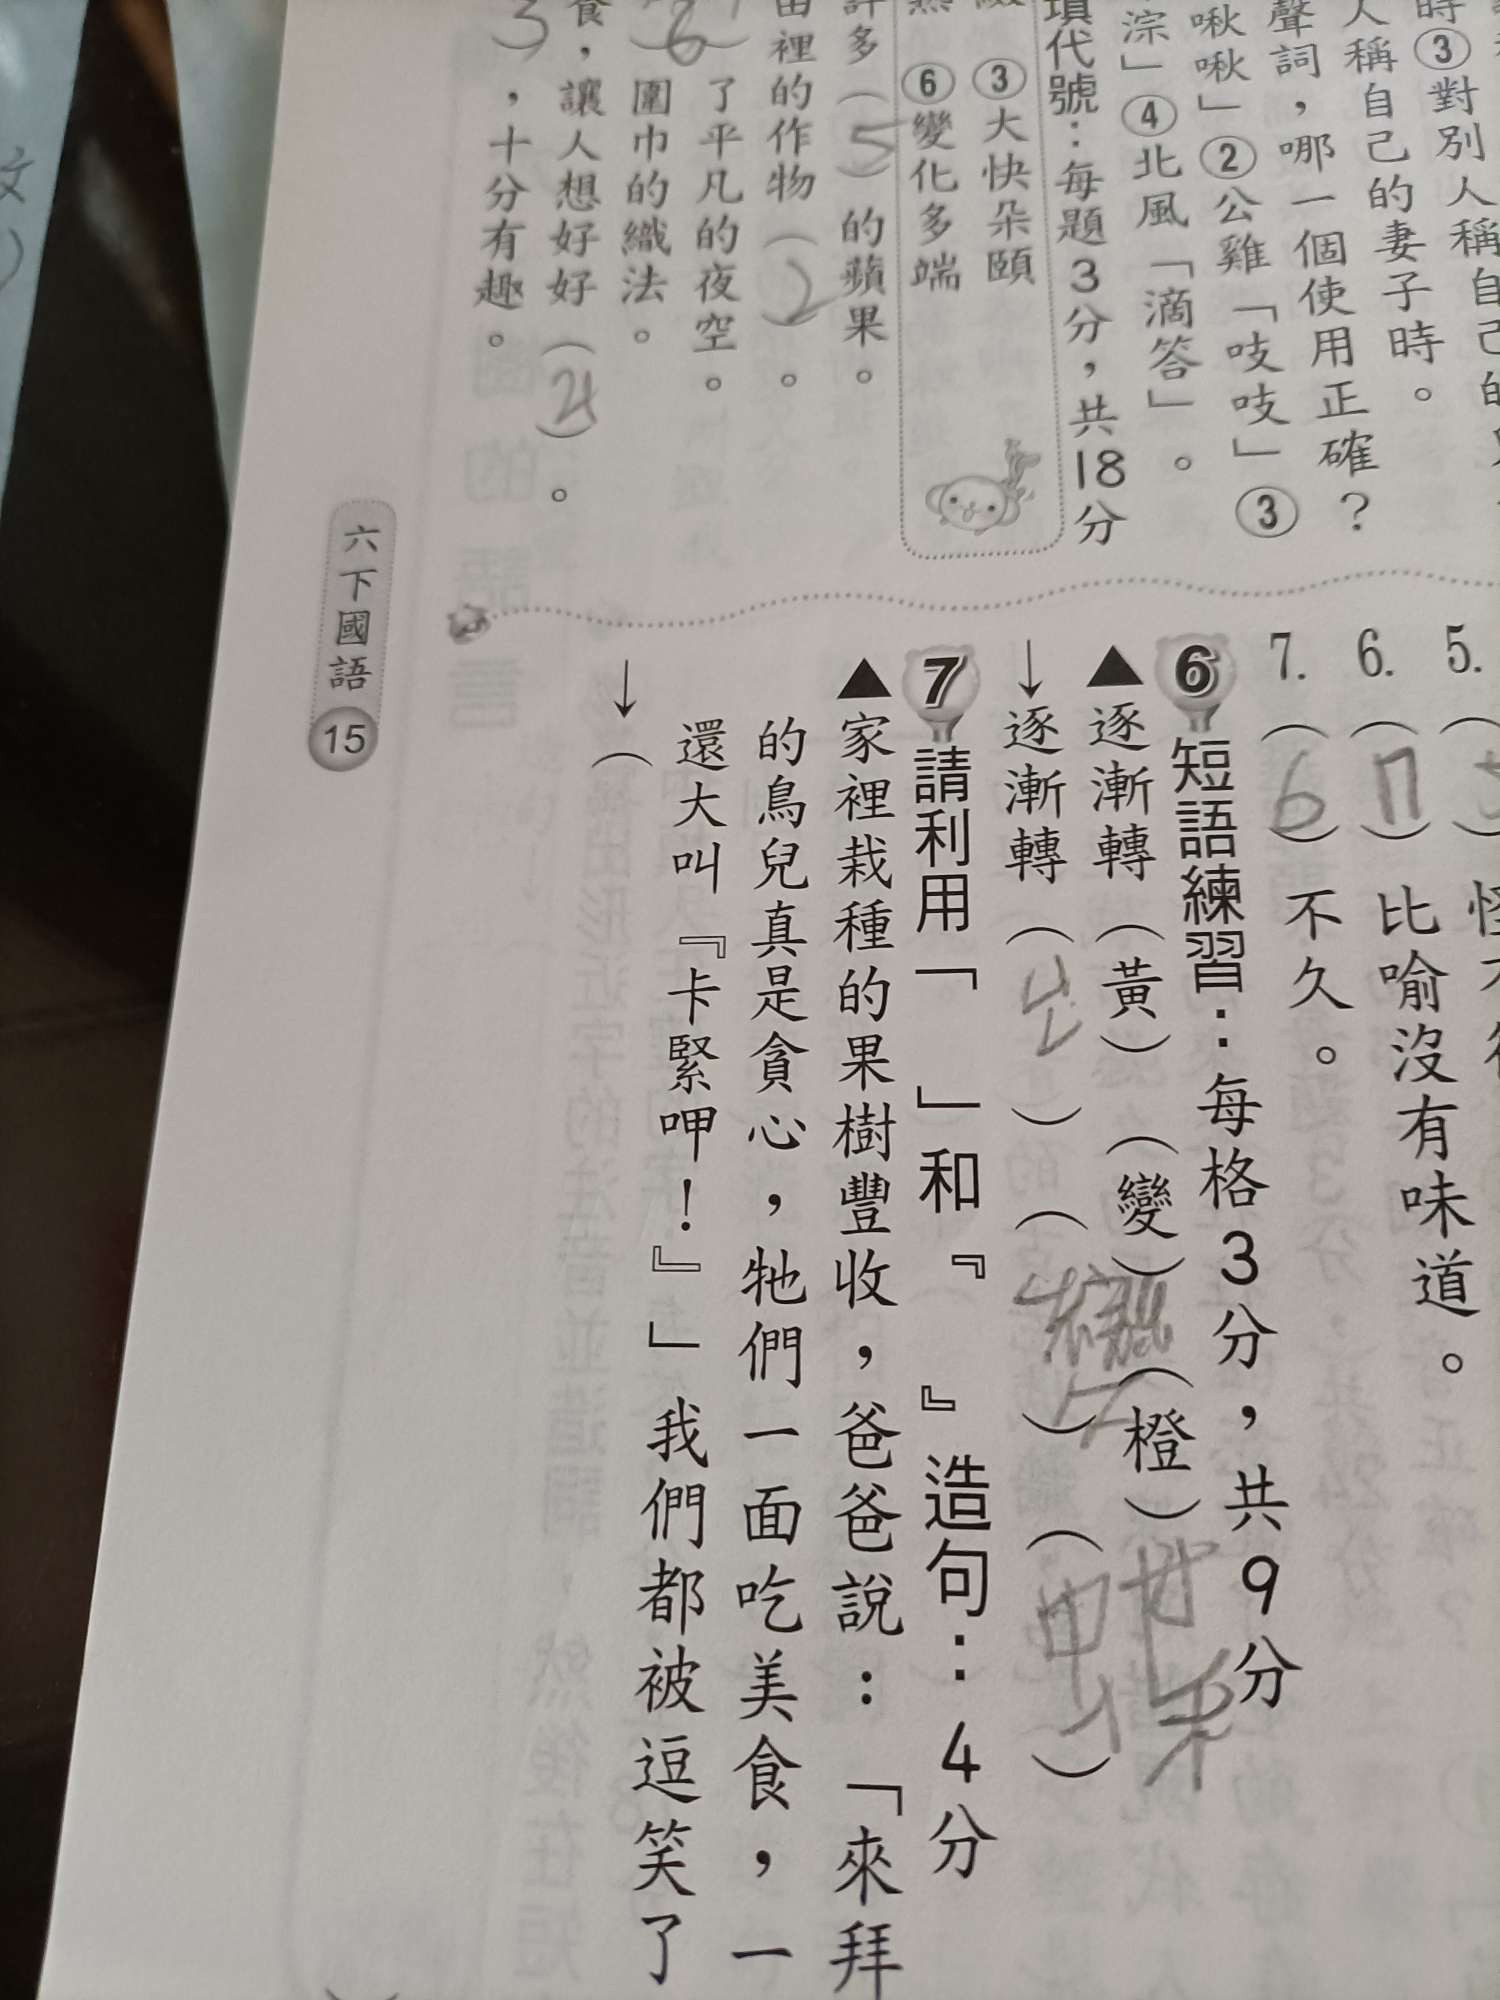 時③對別人稱自己的
人稱自己的妻子時。
聲詞，哪一個使用正確？
啾啾」②公雞「吱吱」③
淙」④北風「滴答」。
填代號：每題3分，共18分
③大快朵頤
⑥變化多端
許多（5）的蘋果。
田裡的作物（2）。
了平凡的夜空。
（6）圍巾的織法。
食，讓人想好好（4）。
（3），十分有趣。
5.（
6.（ㄇ）比喻沒有味道。
7.（6）不久。
6 短語練習：每格3分，共9分
▲逐漸轉（黃）（變）（橙）
↓逐漸轉（
7 請利用「　」和『　』造句：4分
▲家裡栽種的果樹豐收，爸爸說：「來拜
的鳥兒真是貪心，牠們一面吃美食，一
還大叫『卡緊呷！』」我們都被逗笑了
↓（
六下國語
15